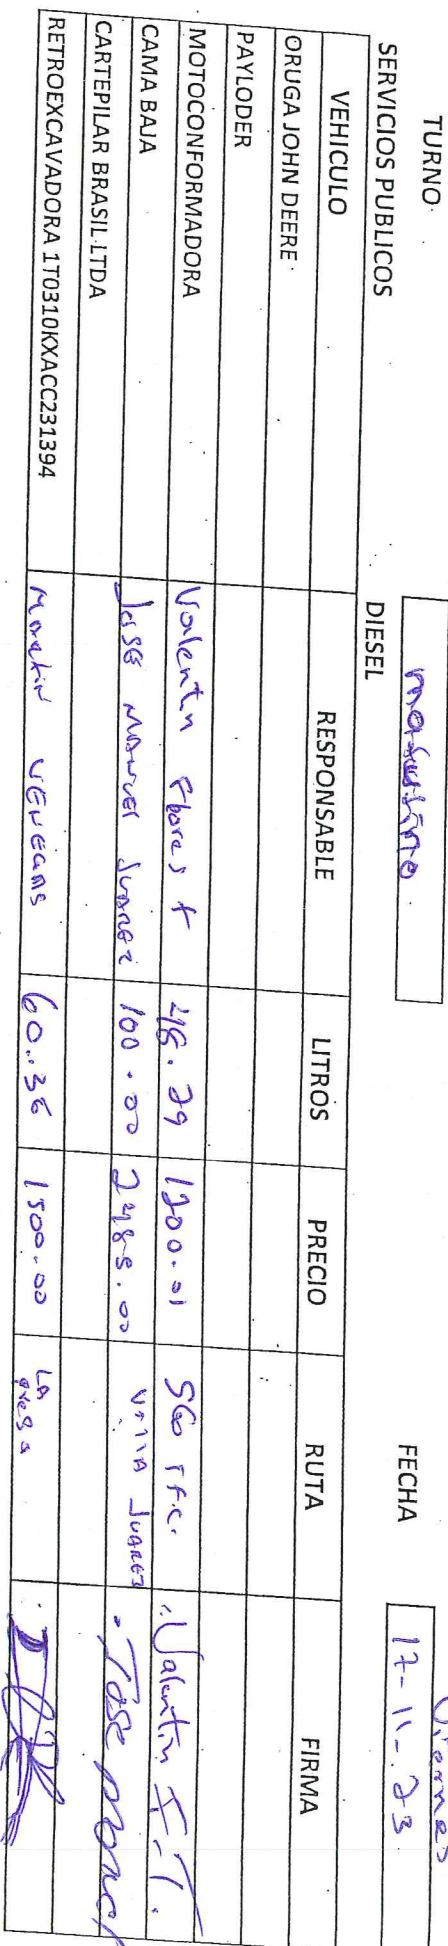 TURNO matutino FECHA Viernes 17-11-23
SERVICIOS PUBLICOS DIESEL
VEHICULO RESPONSABLE LITROS PRECIO RUTA FIRMA
ORUGA JOHN DEERE
PAYLODER
MOTOCONFORMADORA Valentin Flores 48.29 1200.01 Valentin
CAMA BAJA Jose Manuel Juarez 100.00 2485.00 Villa Juarez Jose
CARTEPILAR BRASIL LTDA
RETROEXCAVADORA 1T0310KXACC231394 VENEGAS 60.36 1500.00 La presa